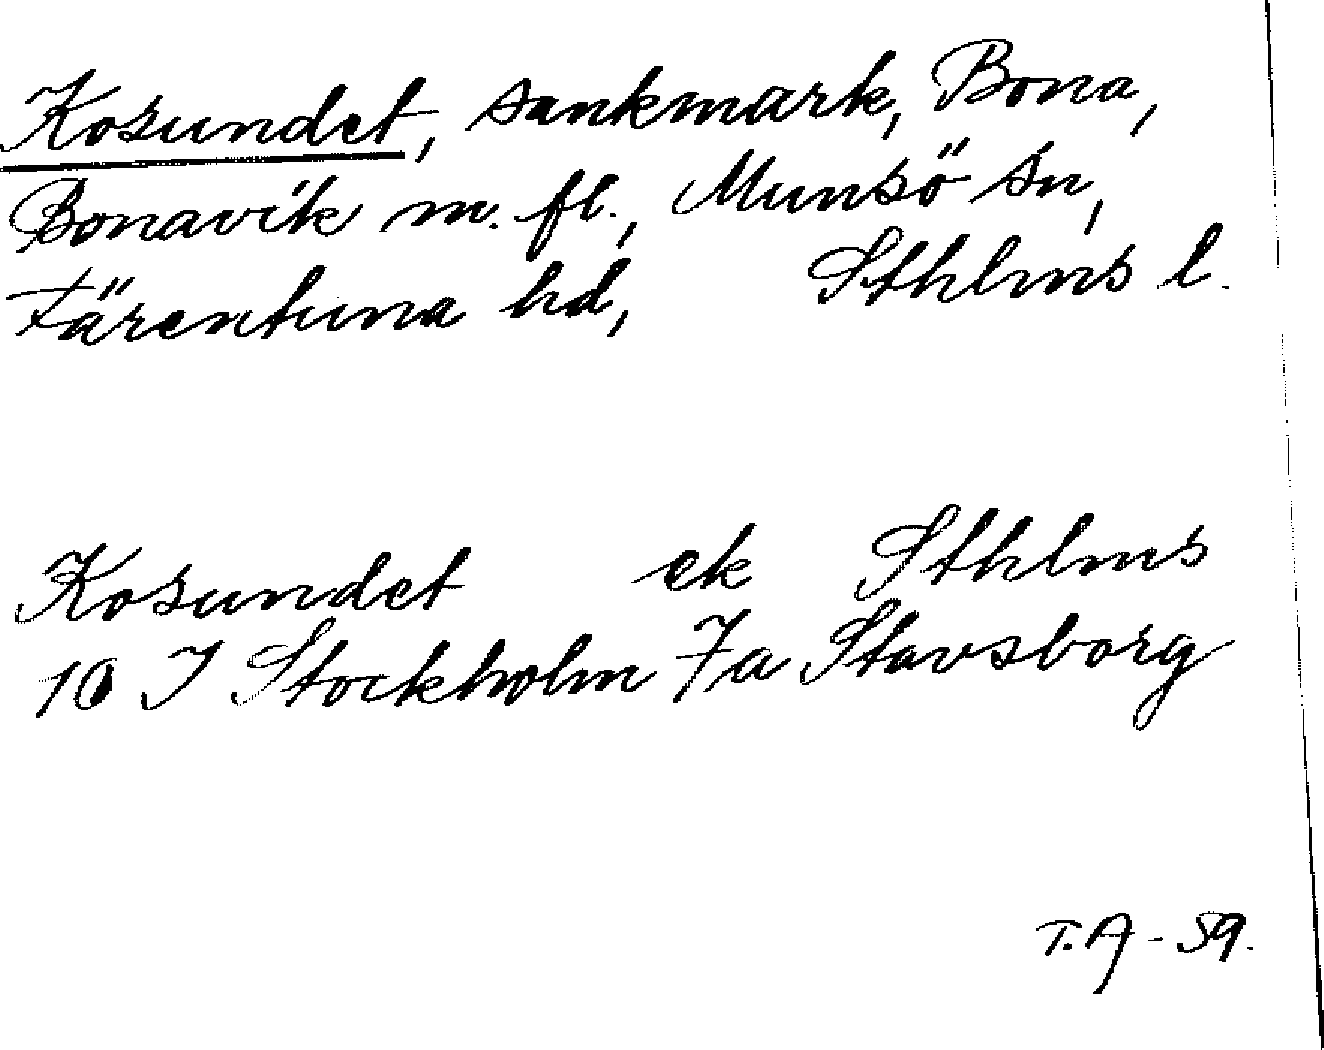 Kosundet, sankmark, Bona,
Bonavik m. fl., Munsö sn,
Färentuna hd, Sthlms l.
Kosundet ek Sthlms
10 I Stockholm 7a Stavsborg
T.A - 59.